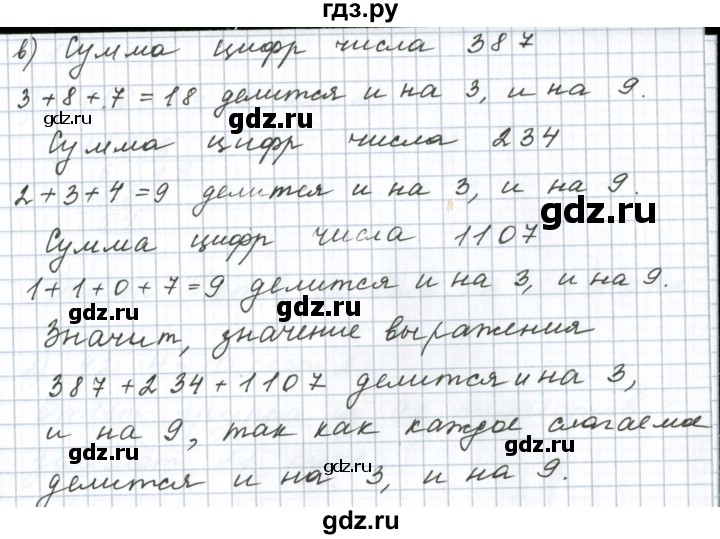 гдз.ру
в) Сумма цифр числа 387
3 + 8 + 7 = 18 делится и на 3, и на 9.
gdz.ru
gdz.ru
gdz.ru
Сумма цифр числа 234
2 + 3 + 4 = 9 делится и на 3, и на 9.
gdz.ru
Сумма цифр числа 1107
1 + 1 + 0 + 7 = 9 делится и на 3, и на 9.
gdz.ru
gdz.ru
Значит, значение выражения
387 + 234 + 1107 делится и на 3,
и на 9, так как каждое слагаемое
gdz.ru
gdz.ru
gdz.ru
делится и на 3, и на 9.
gdz.ru